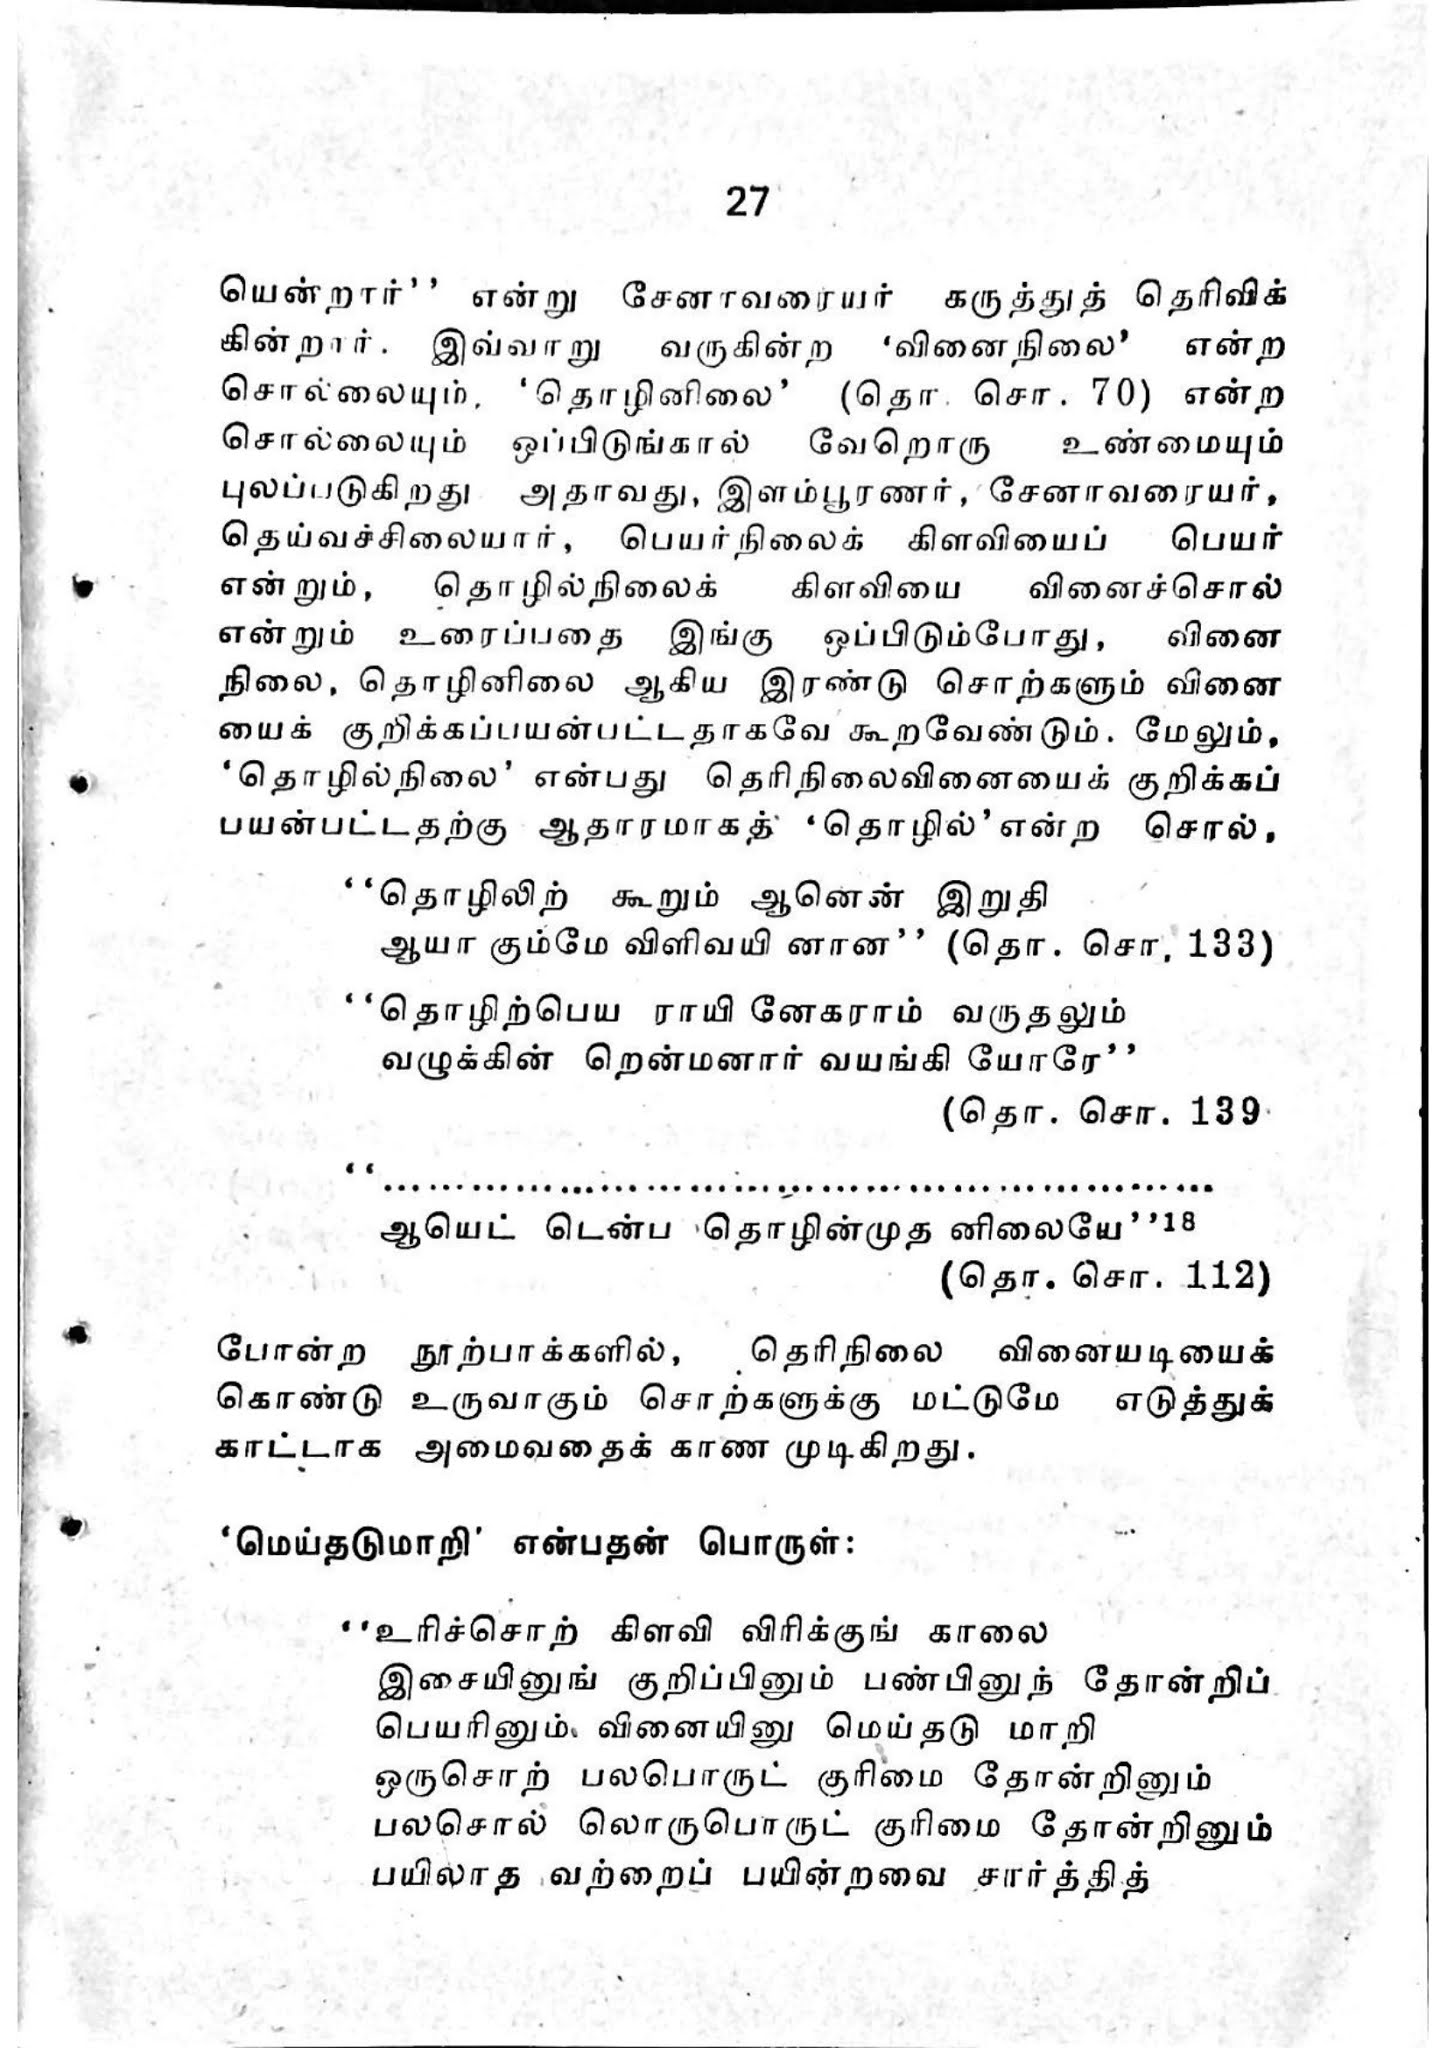 27
யென்றார்'' என்று சேனாவரையர் கருத்துத் தெரிவிக்
கின்றார். இவ்வாறு வருகின்ற 'வினைநிலை' என்ற
சொல்லையும், 'தொழினிலை' (தொ. சொ. 70) என்ற
சொல்லையும் ஒப்பிடுங்கால் வேறொரு உண்மையும்
புலப்படுகிறது அதாவது, இளம்பூரணர், சேனாவரையர்,
தெய்வச்சிலையார், பெயர்நிலைக் கிளவியைப் பெயர்
என்றும், தொழில்நிலைக் கிளவியை வினைச்சொல்
என்றும் உரைப்பதை இங்கு ஒப்பிடும்போது, வினை
நிலை, தொழினிலை ஆகிய இரண்டு சொற்களும் வினை
யைக் குறிக்கப்பயன்பட்டதாகவே கூறவேண்டும். மேலும்,
'தொழில்நிலை' என்பது தெரிநிலைவினையைக் குறிக்கப்
பயன்பட்டதற்கு ஆதாரமாகத் 'தொழில்' என்ற சொல்,
''தொழிலிற் கூறும் ஆனென் இறுதி
ஆயா கும்மே விளிவயி னான'' (தொ. சொ. 133)
''தொழிற்பெய ராயி னேகராம் வருதலும்
வழுக்கின் றென்மனார் வயங்கி யோரே''
(தொ. சொ. 139
''.........................................................
ஆயெட் டென்ப தொழின்முத னிலையே''18
(தொ. சொ. 112)
போன்ற நூற்பாக்களில், தெரிநிலை வினையடியைக்
கொண்டு உருவாகும் சொற்களுக்கு மட்டுமே எடுத்துக்
காட்டாக அமைவதைக் காண முடிகிறது.
'மெய்தடுமாறி' என்பதன் பொருள்:
''உரிச்சொற் கிளவி விரிக்குங் காலை
இசையினுங் குறிப்பினும் பண்பினுந் தோன்றிப்
பெயரினும் வினையினு மெய்தடு மாறி
ஒருசொற் பலபொருட் குரிமை தோன்றினும்
பலசொல் லொருபொருட் குரிமை தோன்றினும்
பயிலாத வற்றைப் பயின்றவை சார்த்தித்